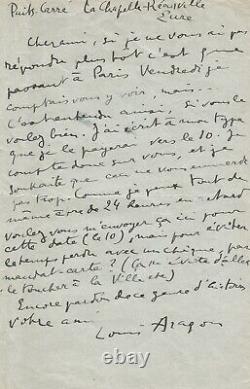 Puits Carré La Chapelle-Réanville
Eure
Cher ami, si je ne vous ai pas
répondu plus tôt c'est que
passant à Paris Vendredi je
comptais vous y voir, mais...
c'est entendu ainsi, si vous le
voulez bien. J'ai écrit à mon type
que je le payerai vers le 10. Je
compte donc sur vous, et je
souhaite que cela ne vous emmerde
pas trop. Comme je peux tout de
même à près de 24 heures en retard
voulez vous m'envoyer ça ici pour
cette date (le 10), mais pour éviter
le temps perdu avec un chèque, par
mandat-carte? (Ça m'évite d'aller
le toucher à la Ville etc)
Encore pardon de ce genre d'histoires
votre ami
Louis Aragon